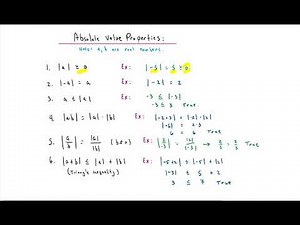 Absolute Value Properties:
Note: a, b are real numbers.
1. |a| ≥ 0 Ex: |-5| = 5 ≥ 0
2. |-a| = a Ex: |-2| = 2
3. a ≤ |a| Ex: -3 ≤ |-3|
-3 ≤ 3 True
4. |ab| = |a|·|b| Ex: |-2·3| = |-2|·|3|
|-6| = 2·3
6 = 6 True
5. |a/b| = |a|/|b| (b≠0) Ex:
6. |a+b| ≤ |a| + |b| Ex: |-5+2| ≤ |-5| + |2|
(Triangle inequality) |-3| ≤ 5 + 2
3 ≤ 7 True